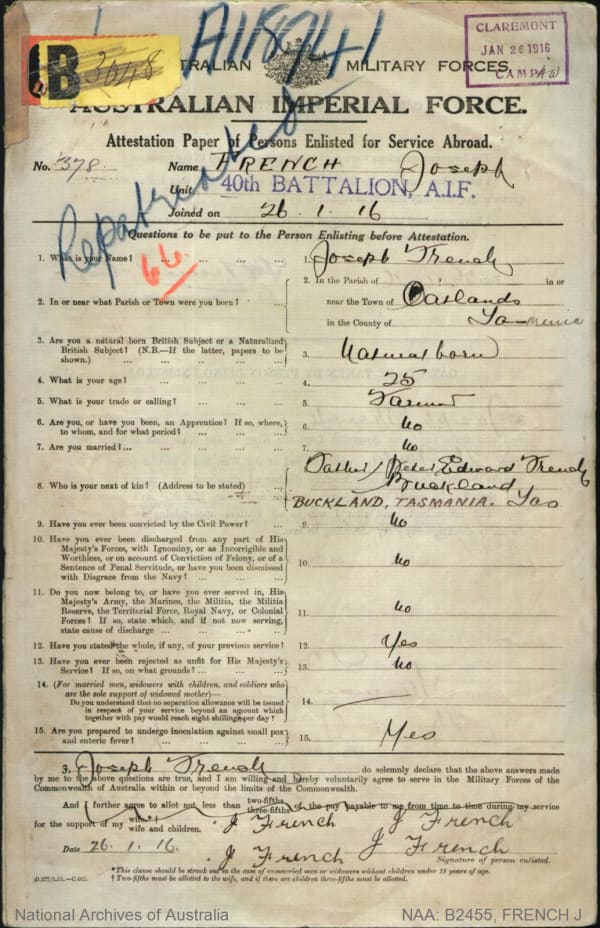 A11894
CLAREMONT
JAN 26 1916
CAMP
B 3048
AUSTRALIAN MILITARY FORCES.
AUSTRALIAN IMPERIAL FORCE.
Attestation Paper of Persons Enlisted for Service Abroad.
No. 378. Name FRENCH Joseph
Unit 40th BATTALION, A.I.F.
Joined on 26. 1. 16
Repatriated
66
Questions to be put to the Person Enlisting before Attestation.
1. What is your Name? ... ... ... ... 1. Joseph French
2. In or near what Parish or Town were you born? ... 2. In the Parish of in or
near the Town of Oatlands
in the County of Tasmania
3. Are you a natural born British Subject or a Naturalized
British Subject? (N.B.—If the latter, papers to be
shown.) ... ... ... ... ... 3. Natural born
4. What is your age? ... ... ... ... 4. 25
5. What is your trade or calling? ... ... ... 5. Farmer
6. Are you, or have you been, an Apprentice? If so, where,
to whom, and for what period? ... ... ... 6. No
7. Are you married? ... ... ... ... ... 7. No
8. Who is your next of kin? (Address to be stated) ... 8. Father) Peter Edward French
Buckland
BUCKLAND, TASMANIA. Tas
9. Have you ever been convicted by the Civil Power? ... 9. No
10. Have you ever been discharged from any part of His
Majesty's Forces, with Ignominy, or as Incorrigible and
Worthless, or on account of Conviction of Felony, or of a
Sentence of Penal Servitude, or have you been dismissed
with Disgrace from the Navy? ... ... ... 10. No
11. Do you now belong to, or have you ever served in, His
Majesty's Army, the Marines, the Militia, the Militia
Reserve, the Territorial Force, Royal Navy, or Colonial
Forces? If so, state which, and if not now serving,
state cause of discharge ... ... ... ... 11. No
12. Have you stated the whole, if any, of your previous service? 12. Yes
13. Have you ever been rejected as unfit for His Majesty's
Service? If so, on what grounds? ... ... ... 13. No
14. (For married men, widowers with children, and soldiers who
are the sole support of widowed mother)—
Do you understand that no separation allowance will be issued
in respect of your service beyond an amount which
together with pay would reach eight shillings per day? ... 14.
15. Are you prepared to undergo inoculation against small pox
and enteric fever? ... ... ... ... 15. Yes
I, Joseph French do solemnly declare that the above answers made
by me to the above questions are true, and I am willing and hereby voluntarily agree to serve in the Military Forces of the
Commonwealth of Australia within or beyond the limits of the Commonwealth.
And I further agree to allot not less than two-fifths three-fifths of the pay payable to me from time to time during my service
for the support of my wife wife and children. J French J French
Date 26. 1. 16. J French J French
Signature of person enlisted.
*This clause should be struck out in the case of unmarried men or widowers without children under 18 years of age.
† Two-fifths must be allotted to the wife, and if there are children three-fifths must be allotted.
National Archives of Australia NAA: B2455, FRENCH J